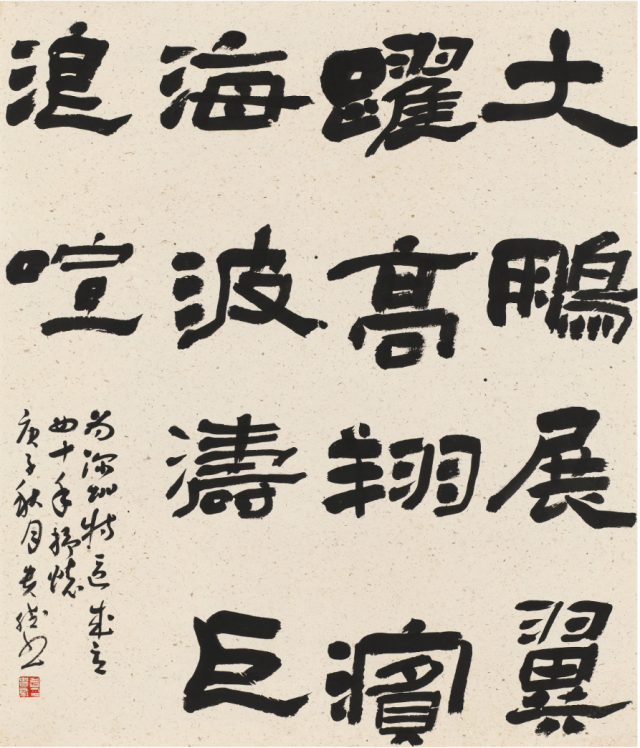 大鵬展翼
躍高翔濱
海波濤巨
浪喧
为深圳特区成立
四十年抒懷
庚子秋月